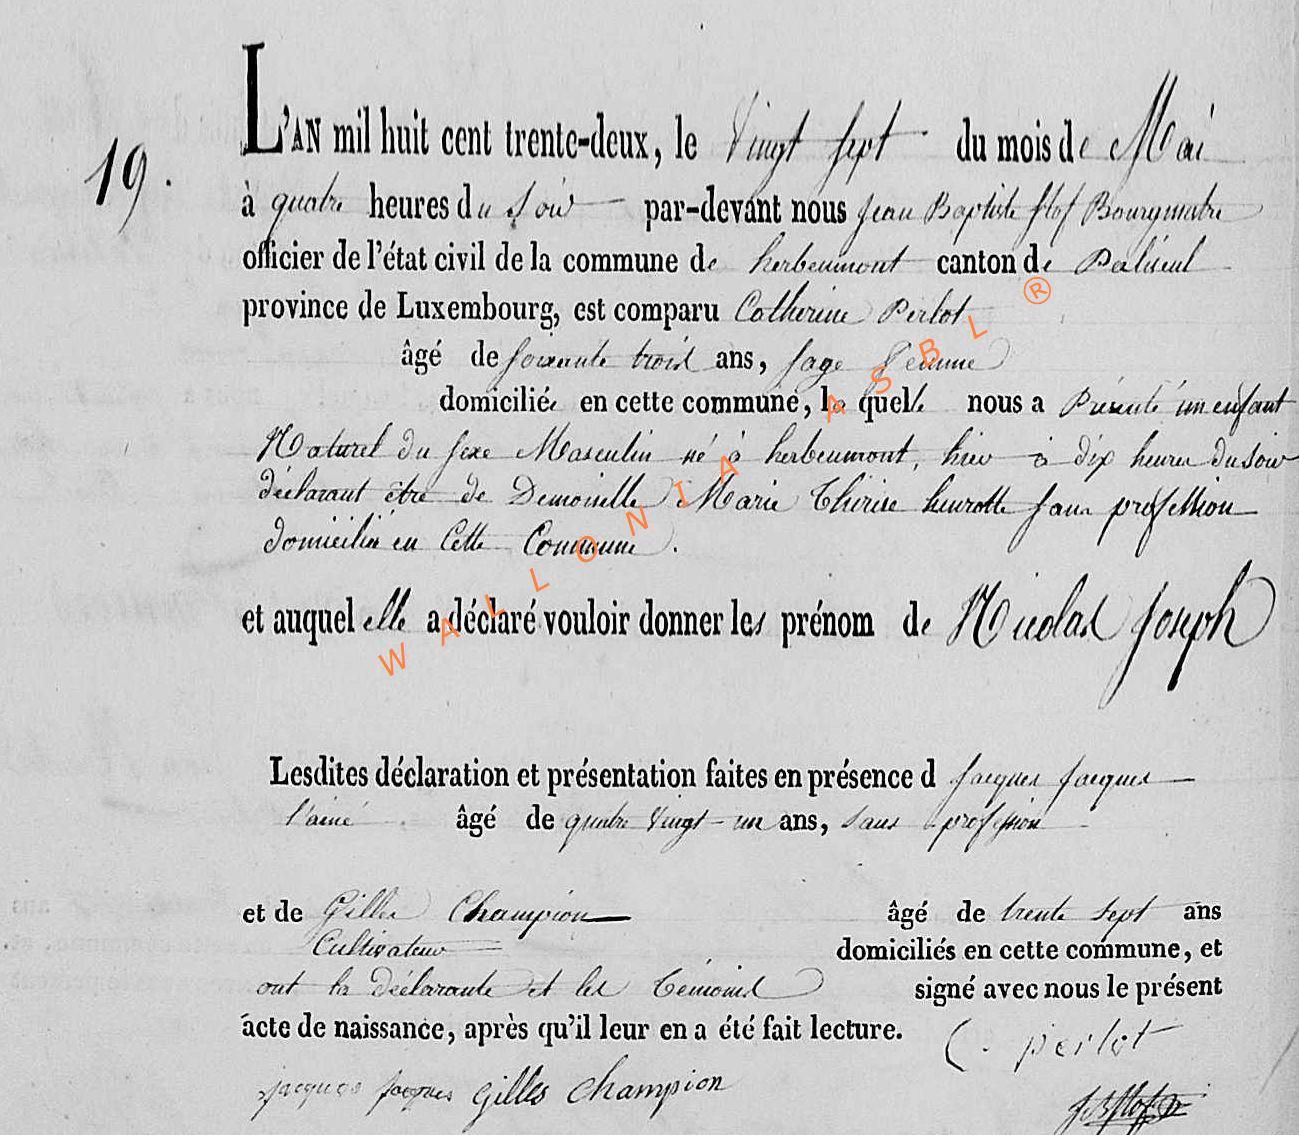 L'AN mil huit cent trente-deux, le Vingt sept du mois de Mai
19.
à quatre heures du soir par-devant nous jean Baptiste Stof Bourgmatre
officier de l'état civil de la commune de herbeumont canton de Paliseul
province de Luxembourg, est comparu Catherine Perlot
âgé de soixante trois ans, sage femme
domiciliée en cette commune, la quelle nous a Présenté un enfant
Naturel du sexe Masculin né à herbeumont, hier à dix heures du soir
déclarant être de Demoiselle Marie Thérèse henrotte sans profession
domiciliée en Cette Commune.
et auquel elle a déclaré vouloir donner les prénom de Nicolas Joseph
Lesdites déclaration et présentation faites en présence d jacques jacques
l'ainé âgé de quatre vingt un ans, sans profession
et de Gilles Champion âgé de trente sept ans
Cultivateur domiciliés en cette commune, et
ont la déclarante et les témoins signé avec nous le présent
acte de naissance, après qu'il leur en a été fait lecture.
C. perlot
jacques jacques Gilles Champion
WALLONIA ASBL ®